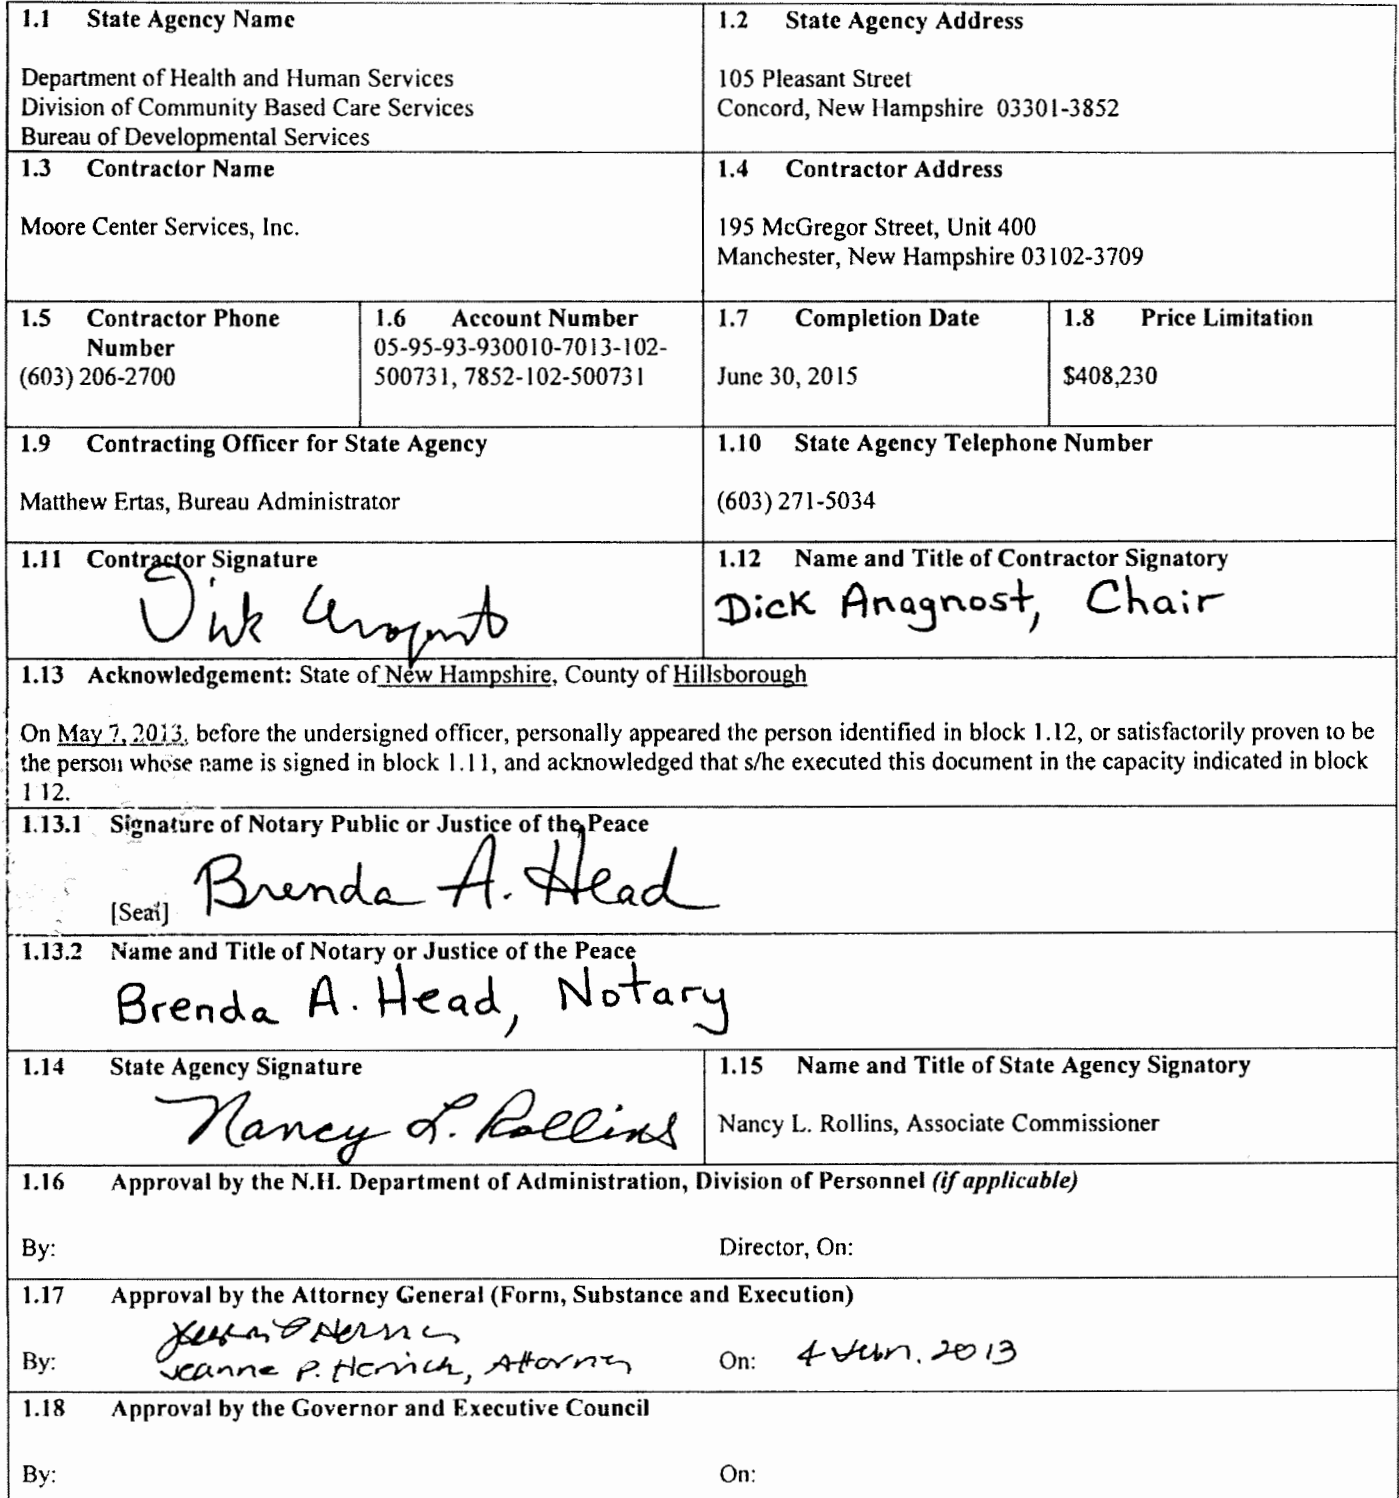 1.1 State Agency Name
Department of Health and Human Services
Division of Community Based Care Services
Bureau of Developmental Services
1.2 State Agency Address
105 Pleasant Street
Concord, New Hampshire 03301-3852
1.3 Contractor Name
Moore Center Services, Inc.
1.4 Contractor Address
195 McGregor Street, Unit 400
Manchester, New Hampshire 03102-3709
1.5 Contractor Phone
Number
(603) 206-2700
1.6 Account Number
05-95-93-930010-7013-102-
500731, 7852-102-500731
1.7 Completion Date
June 30, 2015
1.8 Price Limitation
$408,230
1.9 Contracting Officer for State Agency
Matthew Ertas, Bureau Administrator
1.10 State Agency Telephone Number
(603) 271-5034
1.11 Contractor Signature
1.12 Name and Title of Contractor Signatory
Dick Anagnost, Chair
1.13 Acknowledgement: State of New Hampshire, County of Hillsborough
On May 7, 2013, before the undersigned officer, personally appeared the person identified in block 1.12, or satisfactorily proven to be
the person whose name is signed in block 1.11, and acknowledged that s/he executed this document in the capacity indicated in block
1 12.
1.13.1 Signature of Notary Public or Justice of the Peace
Brenda A. Head
[Seal]
1.13.2 Name and Title of Notary or Justice of the Peace
Brenda A. Head, Notary
1.14 State Agency Signature
Nancy L. Rollins
1.15 Name and Title of State Agency Signatory
Nancy L. Rollins, Associate Commissioner
1.16 Approval by the N.H. Department of Administration, Division of Personnel (if applicable)
By: Director, On:
1.17 Approval by the Attorney General (Form, Substance and Execution)
By: Jeanne P. Herrick, Attorney On: 4 Jun. 2013
1.18 Approval by the Governor and Executive Council
By: On: